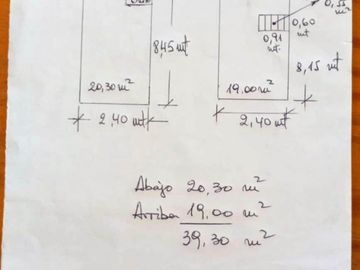 0,60
mt
0,91
mt
8,45 mt
8,15 mt
20,30 m²
19.00 m²
2,40 mt
2,40 mt
Abajo 20,30 m²
Arriba 19,00 m²
39,30 m²